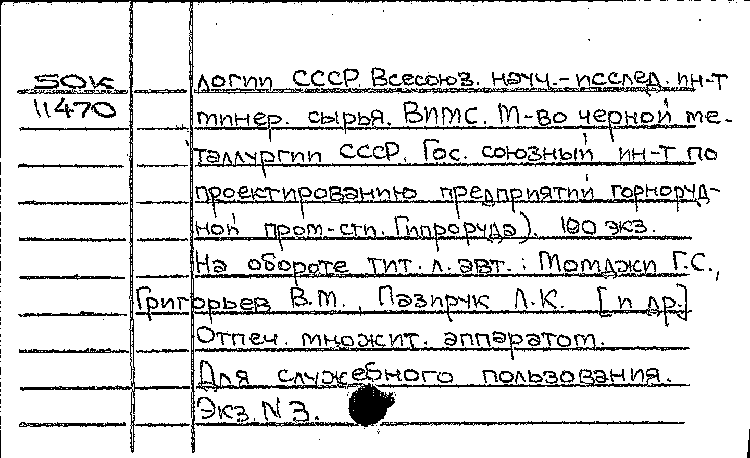 50К логии СССР. Всесоюз. науч.-исслед. ин-т
11470 минер. сырья. ВИМС. М-во черной ме-
таллургии СССР. Гос. союзный ин-т по
проектированию предприятий горноруд-
ной пром-сти. Гипроруда). 100 экз.
На обороте тит. л. авт.: Момджи Г.С.,
Григорьев В.М., Пазирук Л.К. [и др.]
Отпеч. множит. аппаратом.
Для служебного пользования.
Экз. N 3.